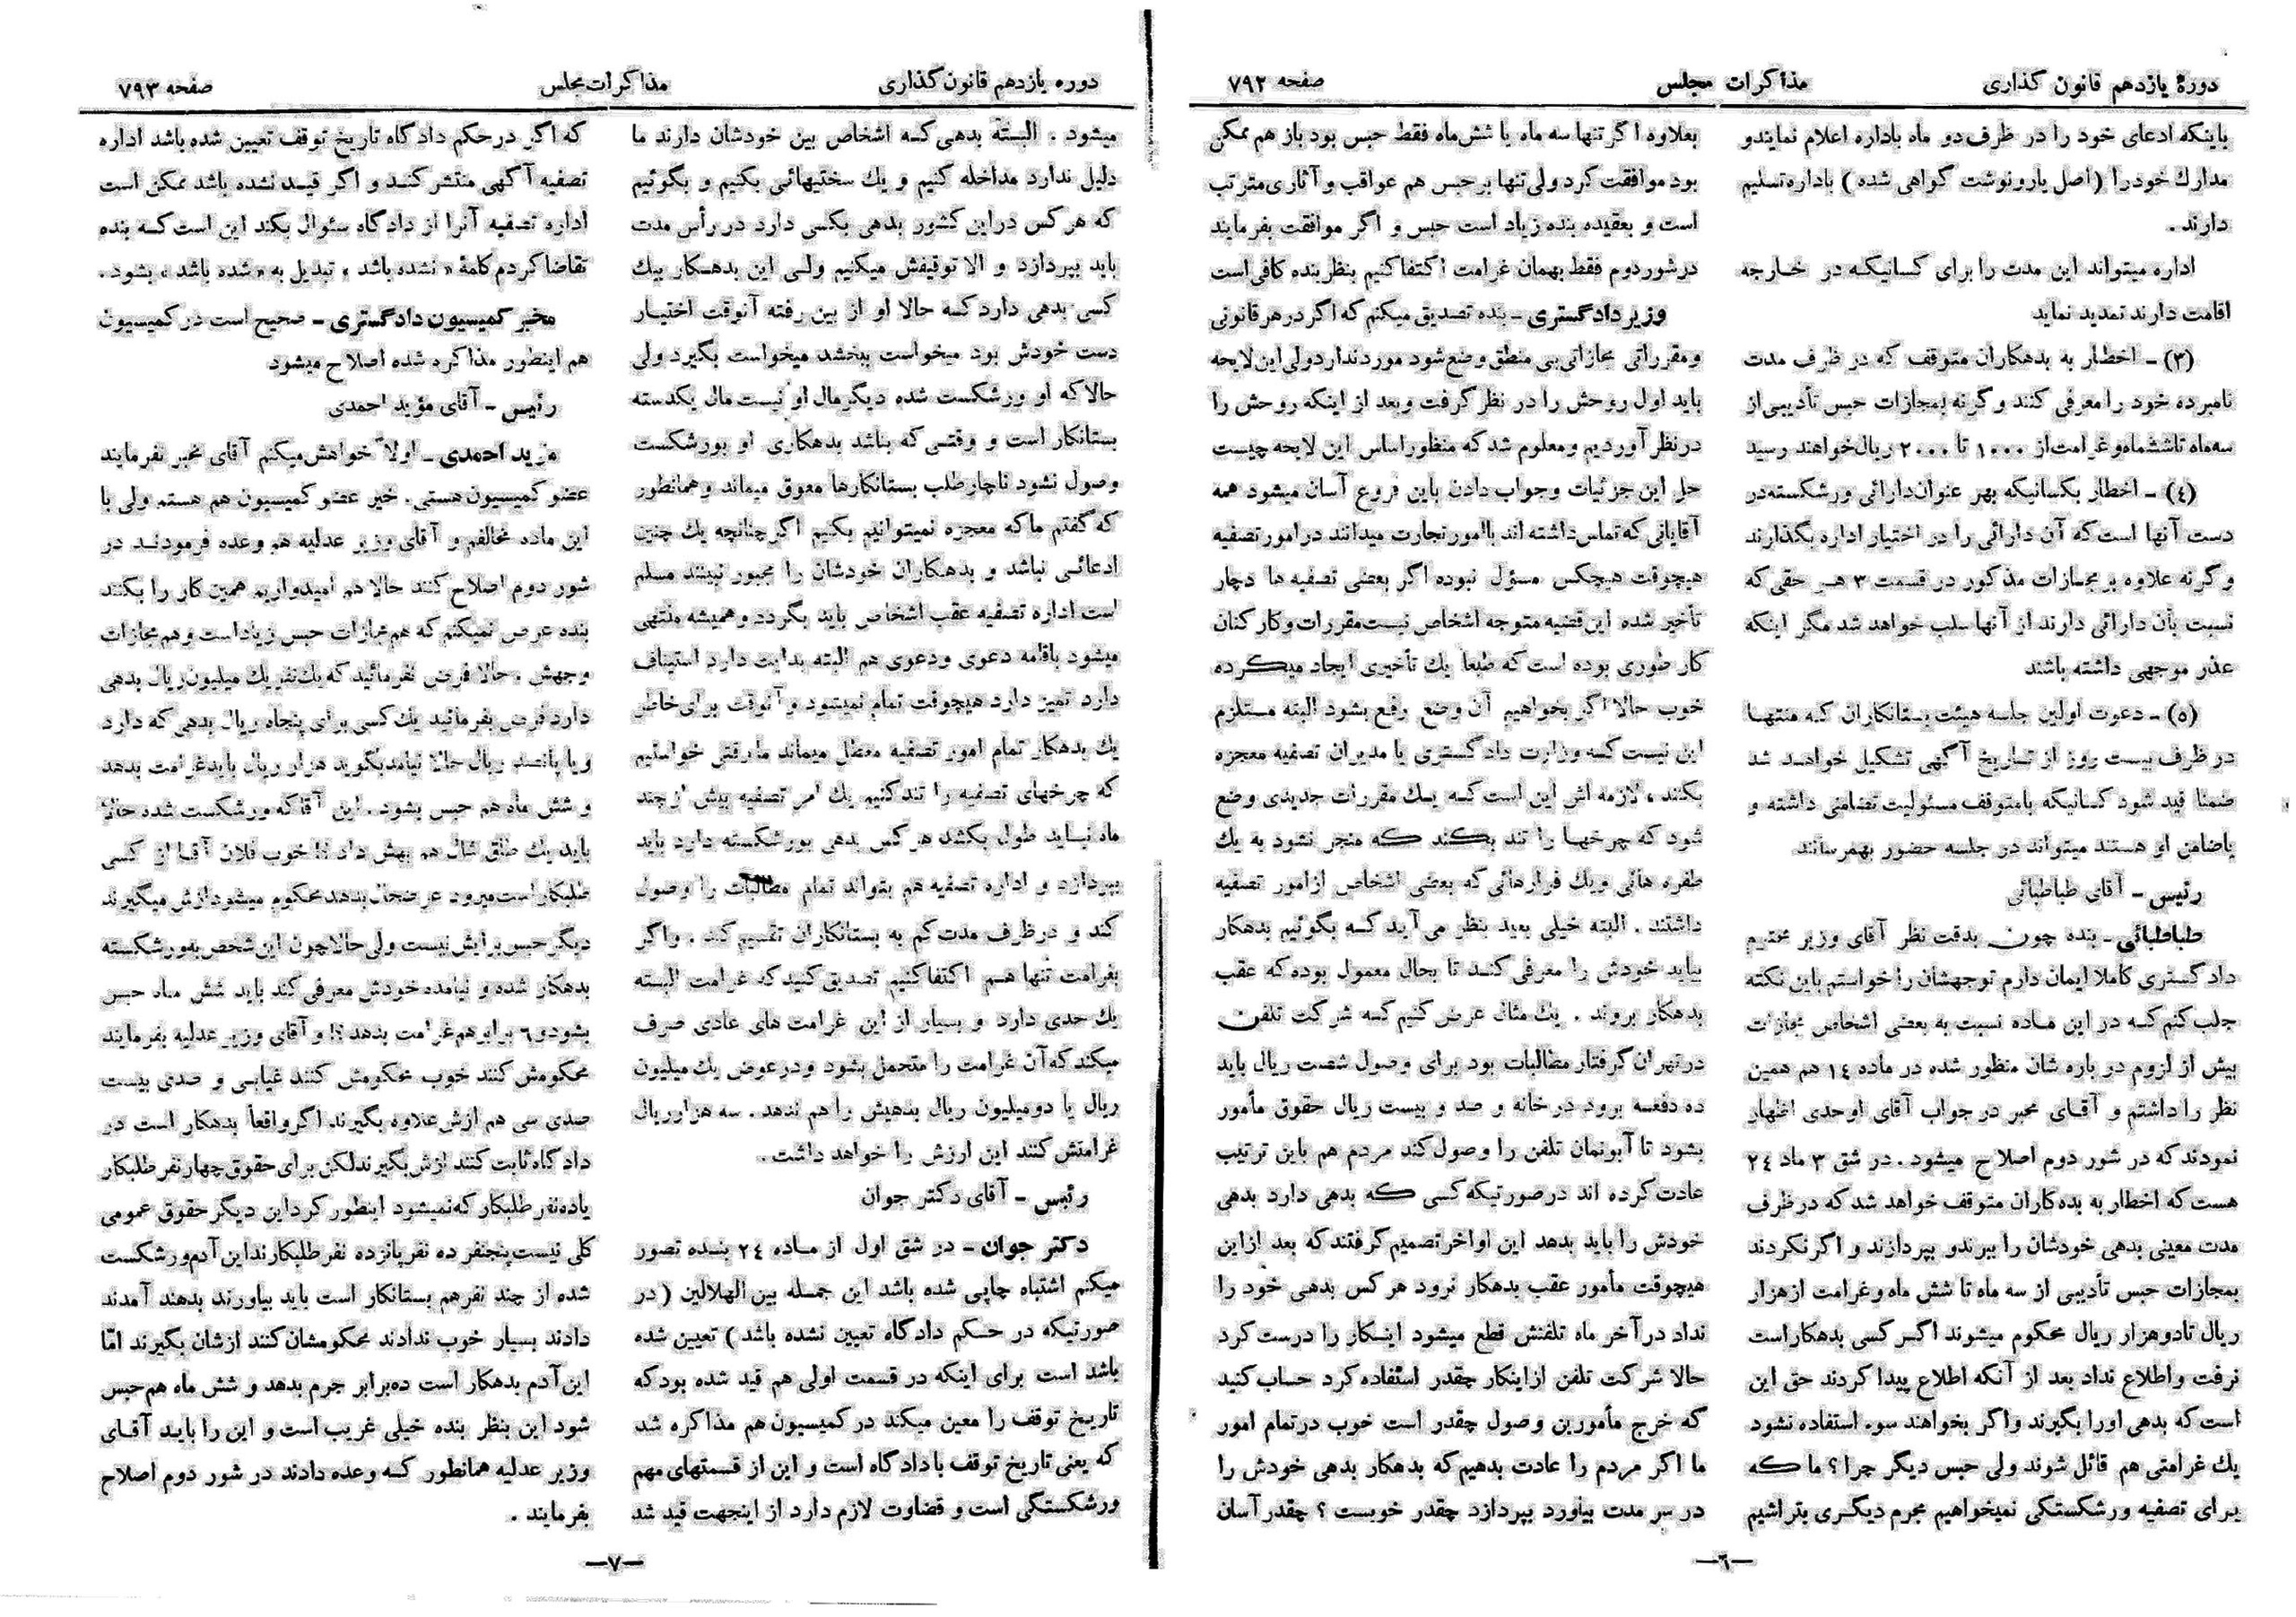 دورهٔ یازدهم قانون گذاری
مذاکرات مجلس
صفحه ۷۹۲
باینکه ادعای خود را در ظرف دو ماه باداره اعلام نمایندو
مدارك خودرا (اصل یارونوشت گواهی شده) باداره تسلیم
دارند.
اداره میتواند این مدت را برای کسانیکه در خارجه
اقامت دارند تمدید نماید
(۳) ـ اخطار به بدهکاران متوقف که در ظرف مدت
نامبرده خود را معرفی کنند و گرنه بمجازات حبس تأدیبی از
سه‌ماه تاششماه‌وغرامت‌از ۱۰۰۰ تا ۲۰۰۰ ریال‌خواهند رسید
(٤) ـ اخطار بکسانیکه بهر عنوان‌دارائی ورشکسته‌در
دست آنها است که آن دارائی را در اختیار اداره بگذارند
و گرنه علاوه بر مجازات مذکور در قسمت ۳ هر حقی که
نسبت بآن دارائی دارند از آنها سلب خواهد شد مگر اینکه
عذر موجهی داشته باشند
(٥) ـ دعوت اولین جلسه هیئت بستانکاران که منتها
در ظرف بیست روز از تاریخ آگهی تشکیل خواهد شد
ضمنا قید شود کسانیکه بامتوقف مسئولیت تضامنی داشته و
یاضامن او هستند میتواند در جلسه حضور بهمرسانند
رئیس ـ آقای طباطبائی
طباطبائی ـ بنده چون بدقت نظر آقای وزیر محترم
دادگستری کاملا ایمان دارم توجهشان را خواستم باین نکته
جلب کنم که در این ماده نسبت به بعضی اشخاص مجازات
بیش از لزوم در باره شان منظور شده در ماده ١٤ هم همین
نظر را داشتم و آقای مخبر در جواب آقای اوحدی اظهار
نمودند که در شور دوم اصلاح میشود. در شق ۳ ماد ٢٤
هست که اخطار به بده‌کاران متوقف خواهد شد که در ظرف
مدت معینی بدهی خودشان را ببرندو بپردازند و اگر نکردند
بمجازات حبس تأدیبی از سه ماه تا شش ماه و غرامت ازهزار
ریال تادوهزار ریال محکوم میشوند اگر کسی بدهکاراست
نرفت و اطلاع نداد بعد از آنکه اطلاع پیدا کردند حق این
است که بدهی اورا بگیرند واگر بخواهند سوء استفاده نشود
یك غرامتی هم قائل شوند ولی حبس دیگر چرا؟ ما که
برای تصفیه ورشکستگی نمیخواهیم مجرم دیگری بتراشیم
بعلاوه اگر تنها سه ماه یا شش‌ماه فقط حبس بود باز هم ممکن
بود موافقت کرد ولی تنها بر حبس هم عواقب و آثاری مترتب
است و بعقیده بنده زیاد است حبس و اگر موافقت بفرمایند
درشور دوم فقط بهمان غرامت اکتفا کنیم بنظر بنده کافی است
وزیر دادگستری ـ بنده تصدیق میکنم که اگر در هر قانونی
ومقرراتی مجازاتی‌بی منطق وضع شود مورد ندارد ولی این لایحه
باید اول روحش را در نظر گرفت و بعد از اینکه روحش را
درنظر آوردیم و معلوم شد که منظور اساس این لایحه چیست
حل این جزئیات و جواب دادن باین فروع آسان میشود همه
آقایانی که تماس داشته اند باامور تجارت میدانند در امور تصفیه
هیچوقت هیچکس مسؤل نبوده اگر بعضی تصفیه ها دچار
تأخیر شده این قضیه متوجه اشخاص نیست مقررات و کارکنان
کار طوری بوده است که طبعاً یك تأخیری ایجاد میکرده
خوب حالا اگر بخواهیم آن وضع رفع بشود البته مستلزم
این نیست که وزارت دادگستری یا مدیران تصفیه معجزه
بکنند، لازمه اش این است که یك مقررات جدیدی وضع
شود که چرخها را تند بکند که منجر نشود به یك
طفره هائی و یك فرارهائی که بعضی اشخاص ازامور تصفیه
داشتند. البته خیلی بعید بنظر می آید که بگوئیم بدهکار
بیاید خودش را معرفی کند تا بحال معمول بوده که عقب
بدهکار بروند. یك مثال عرض کنم که شرکت تلفن
درتهران گرفتار مطالبات بود برای وصول شصت ریال باید
ده دفعه برود در خانه و صد و بیست ریال حقوق مأمور
بشود تا آبونمان تلفن را وصول کند مردم هم باین ترتیب
عادت کرده اند در صورتیکه کسی که بدهی دارد بدهی
خودش را باید بدهد این اواخر تصمیم گرفتند که بعد ازاین
هیچوقت مأمور عقب بدهکار نرود هر کس بدهی خود را
نداد در آخر ماه تلفنش قطع میشود اینکار را درست کرد
حالا شرکت تلفن ازاینکار چقدر استفاده کرد حساب کنید
که خرج مأمورین وصول چقدر است خوب درتمام امور
ما اگر مردم را عادت بدهیم که بدهکار بدهی خودش را
در سر مدت بیاورد بپردازد چقدر خوبست؟ چقدر آسان
ـ٦ـ
دوره یازدهم قانون گذاری
مذاکرات مجلس
صفحه ۷۹۳
میشود. البته بدهی که اشخاص بین خودشان دارند ما
دلیل ندارد مداخله کنیم و یك سختیهائی بکنیم و بگوئیم
که هر کس دراین کشور بدهی بکسی دارد در رأس مدت
باید بپردازد و الا توقیفش میکنیم ولی این بدهکار بیك
کسی بدهی دارد که حالا او از بین رفته آنوقت اختیار
دست خودش بود میخواست ببخشد میخواست بگیرد ولی
حالا که او ورشکست شده دیگر مال او نیست مال یکدسته
بستانکار است و وقتی که بناشد بدهکاری او بورشکست
وصول نشود ناچار طلب بستانکارها معوق میماند و همانطور
که گفتم ما که معجزه نمیتوانیم بکنیم اگر چنانچه یك چنین
ادعائی نباشد و بدهکاران خودشان را مجبور نبینند مسلم
است اداره تصفیه عقب اشخاص باید بگردد و همیشه منتهی
میشود باقامه دعوی و دعوی هم البته بدایت دارد استیناف
دارد تمیز دارد هیچوقت تمام نمیشود و آنوقت برای خاطر
یك بدهکار تمام امور تصفیه معطل میماند ما وقتی خواستیم
که چرخهای تصفیه را تند کنیم یك امر تصفیه بیش از چند
ماه نباید طول بکشد هر کس بدهی بورشکسته دارد باید
بپردازد و اداره تصفیه هم بتواند تمام مطالبات را وصول
کند و درظرف مدت کم به بستانکاران تقسیم کند. و اگر
بغرامت تنها هم اکتفا کنیم تصدیق کنید که غرامت البته
یك حدی دارد و بسیار از این غرامت های عادی صرف
میکند که آن غرامت را متحمل بشود و در عوض یك میلیون
ریال یا دو میلیون ریال بدهیش را هم ندهد. سه هزار ریال
غرامتش کنند این ارزش را خواهد داشت.
رئیس ـ آقای دکتر جوان
دکتر جوان ـ در شق اول از ماده ٢٤ بنده تصور
میکنم اشتباه چاپی شده باشد این جمله بین الهلالین (در
صورتیکه در حکم دادگاه تعیین نشده باشد) تعیین شده
باشد است برای اینکه در قسمت اولی هم قید شده بود که
تاریخ توقف را معین میکند در کمیسیون هم مذاکره شد
که یعنی تاریخ توقف با دادگاه است و این از قسمتهای مهم
ورشکستگی است و قضاوت لازم دارد از اینجهت قید شد
که اگر در حکم دادگاه تاریخ توقف تعیین شده باشد اداره
تصفیه آگهی منتشر کند و اگر قید نشده باشد ممکن است
اداره تصفیه آنرا از دادگاه سئوال بکند این است که بنده
تقاضا کردم کلمهٔ «نشده باشد» تبدیل به «شده باشد» بشود.
مخبر کمیسیون دادگستری ـ صحیح است در کمیسیون
هم اینطور مذاکره شده اصلاح میشود
رئیس ـ آقای مؤید احمدی
مؤید احمدی ـ اولاً خواهش میکنم آقای مخبر نفرمایند
عضو کمیسیون هستی. خیر عضو کمیسیون هم هستم ولی با
این ماده مخالفم و آقای وزیر عدلیه هم وعده فرمودند در
شور دوم اصلاح کنند حالا هم امیدواریم همین کار را بکنند
بنده عرض نمیکنم که هم مجازات حبس زیاد است و هم مجازات
وجهش. حالا فرض نفرمائید که یك‌نفر یك میلیون ریال بدهی
دارد فرض بفرمائید یك کسی برای پنجاه ریال بدهی که دارد
و یا پانصد ریال حالا نیامد بگوید هزار ریال باید غرامت بدهد
و شش ماه هم حبس بشود. این آقا که ورشکست شده حالا
باید یك طاق شال هم بهش داد!! خوب فلان آقا از کسی
طلبکار است میرود عرضحال بدهد محکوم میشود ازش میگیرند
دیگر حبس برایش نیست ولی حالا چون این شخص به‌ورشکسته
بدهکار شده و نیامده خودش معرفی کند باید شش ماه حبس
بشود و ٦ برابر هم غرامت بدهد!! و آقای وزیر عدلیه بفرمایند
محکومش کنند خوب محکومش کنند غیابی و صدی بیست
صدی سی هم ازش علاوه بگیرند. اگر واقعاً بدهکار است در
دادگاه ثابت کنند ازش بگیرند لکن برای حقوق چهار نفر طلبکار
یا ده‌نفر طلبکار که نمیشود اینطور کرد این دیگر حقوق عمومی
کلی نیست پنجنفر ده نفر پانزده نفر طلبکارند این آدم ورشکست
شده از چند نفر هم بستانکار است باید بیاورند بدهند آمدند
دادند بسیار خوب ندادند محکومشان کنند ازشان بگیرند امّا
این آدم بدهکار است ده‌برابر جرم بدهد و شش ماه هم حبس
شود این بنظر بنده خیلی غریب است و این را باید آقای
وزیر عدلیه همانطور که وعده دادند در شور دوم اصلاح
بفرمایند.
ـ۷ـ